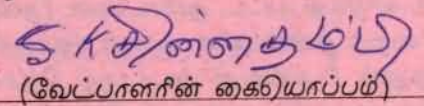 S K சின்னதம்பி
(வேட்பாளரின் கையொப்பம்)